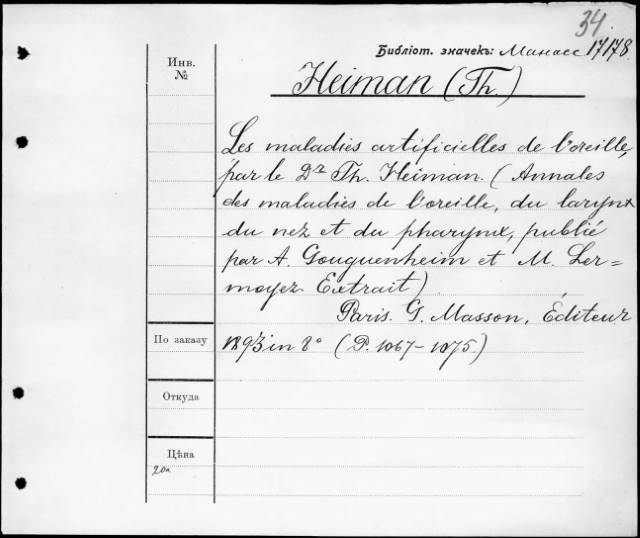 34
Библіот. значекъ: Манасс 17178
Инв.
№
Heiman (Th.)
Les maladies artificielles de l'oreille,
par le Dr Th. Heiman. (Annales
des maladies de l'oreille, du larynx
du nez et du pharynx, publié
par A. Gouguenheim et M. Ler=
moyez. Extrait)
Paris. G. Masson, Éditeur
По заказу
1893 in 8° (P. 1067-1075)
Откуда
Цѣна